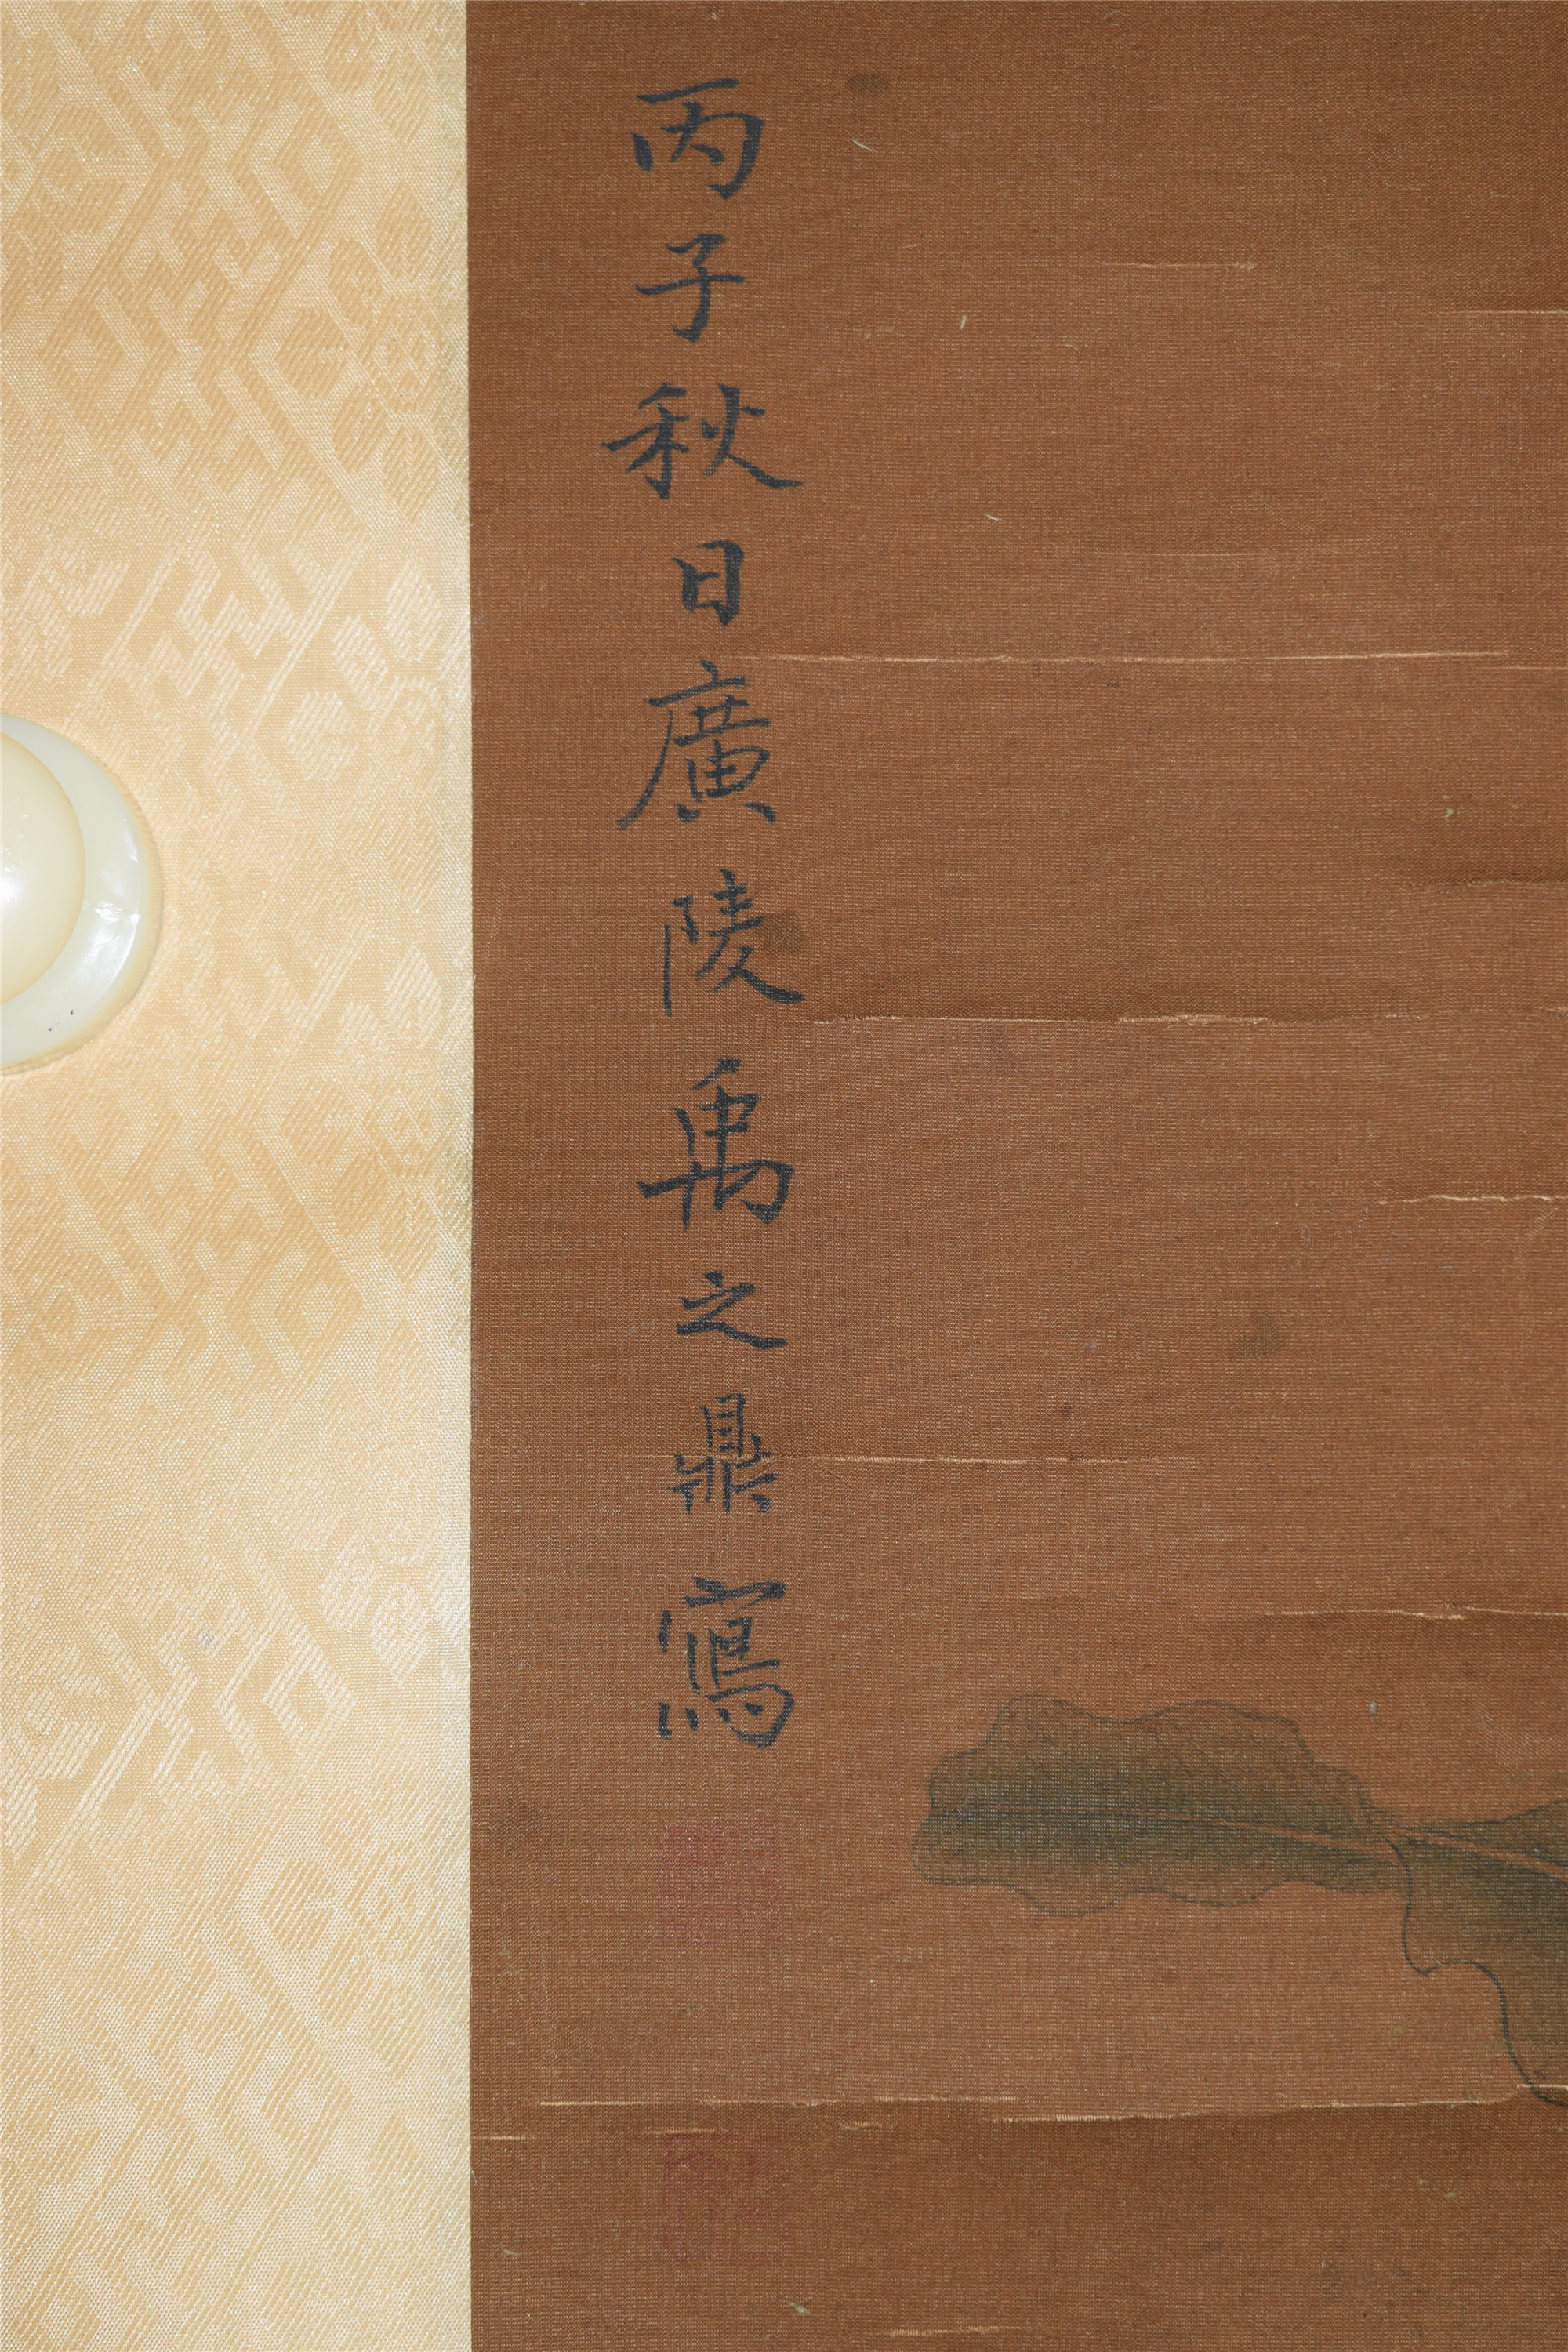 丙子秋日廣陵禹之鼎寫